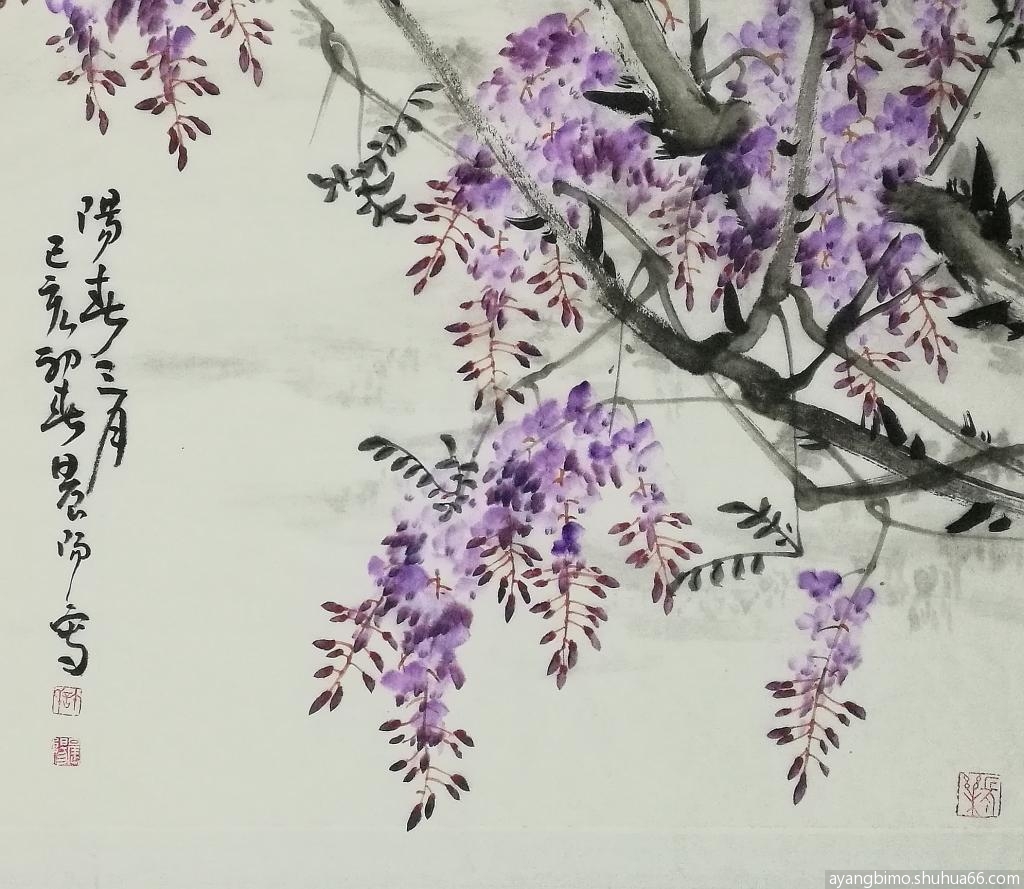 陽春三月
己亥初春晨阳寫
ayangbimo.shuhua66.com